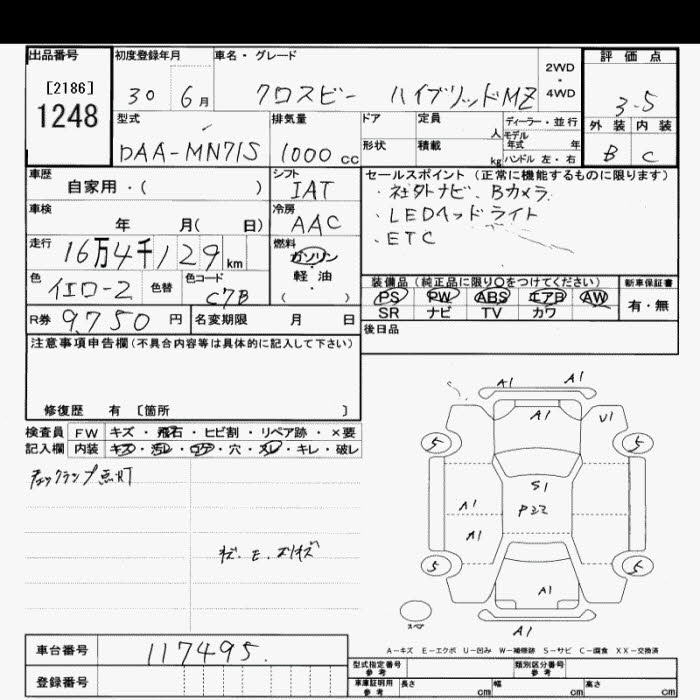 出品番号
[2186]
1248
初度登録年月
30 6月
車名・グレード
クロスビー ハイブリッドMZ
2WD
・
4WD
評価点
3.5
外装 内装
B C
型式
DAA-MN71S
排気量
1000 cc
ドア
形状
定員
人
積載
kg
ディーラー・並行
モデル
年式 年
ハンドル 左・右
車歴
自家用・( )
シフト
IAT
車検
年 月( 日)
冷房
AAC
走行
16万4千129 km
燃料
ガソリン
・
軽・油
( )
色
イエロー2
色替
色コード
C7B
R券 9,750 円
名変期限 月 日
セールスポイント (正常に機能するものに限ります)
・社外ナビ、Bカメラ
・LEDヘッドライト
・ETC
装備品 (純正品に限り○をつけてください)
PS PW ABS エアB AW
SR ナビ TV カワ
新車保証書
有・無
後日品
注意事項申告欄(不具合内容等は具体的に記入して下さい)
修復歴 有 〔箇所 〕
検査員 FW キズ・飛石・ヒビ割・リペア跡・×要
記入欄 内装 キズ・汚レ・コゲ・穴・スレ・キレ・破レ
チェックランプ点灯
キズ、E、スリキズ
A1
A1
A1
U1
5
5
S1
P22
A1
A1
5
5
A1
A1
スペア
A-キズ E-エクボ U-凹み W-補修跡 S-サビ C-腐食 XX-交換済
車台番号
117495
登録番号
型式指定番号
参考
類別区分番号
参考
車庫証明用
参考
長さ cm 幅 cm 高さ cm